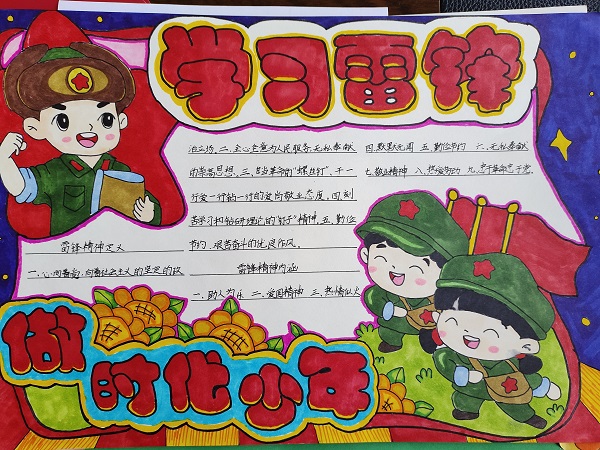 学习雷锋
雷锋精神定义
一、心向着党，向着社会主义的坚定的政
治立场，二、全心全意为人民服务，无私奉献
的崇高思想，三、甘当革命的“螺丝钉”，干一
行爱一行钻一行的爱岗敬业态度，四、刻
苦学习和钻研理论的“钉子”精神，五、勤俭
节约，艰苦奋斗的优良作风。
雷锋精神内涵
一、助人为乐 二、爱国精神 三、热情似火
四、默默无闻 五、勤俭节约 六、无私奉献
七、敬业精神 八、热爱劳动 九、忠于革命忠于党
做时代少年